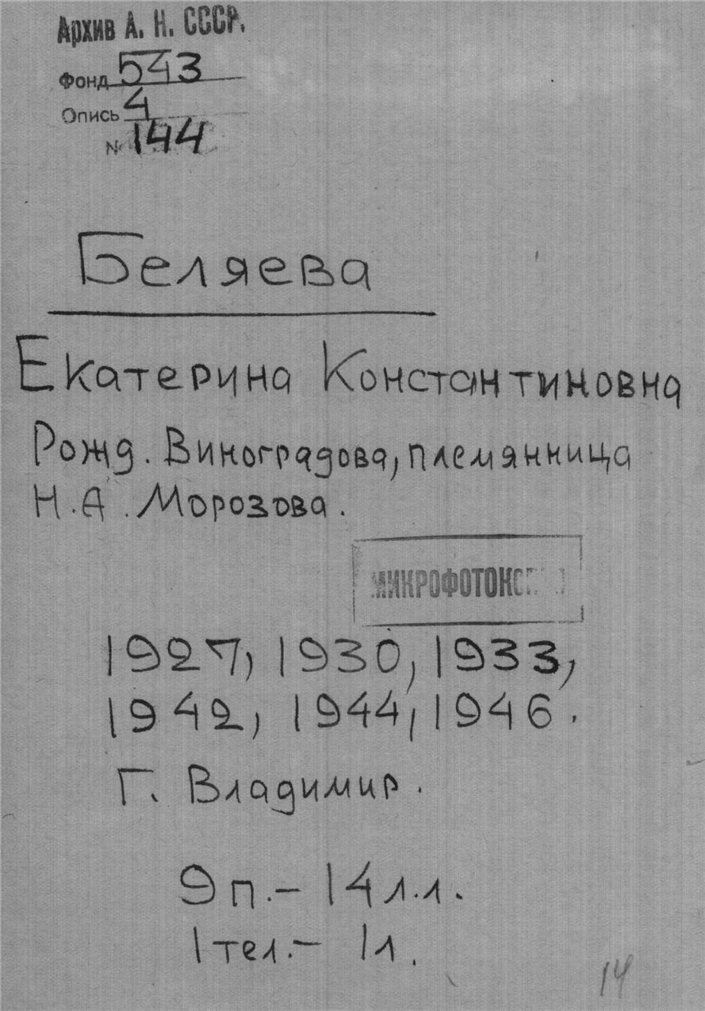 Архив А. Н. СССР.
Фонд 543
Опись 4
№ 144
Беляева
Екатерина Константиновна
Рожд. Виноградова, племянница
Н.А. Морозова.
1927, 1930, 1933,
1942, 1944, 1946.
Г. Владимир.
9 п. – 14 л.л.
1 тел. – 1 л.
14